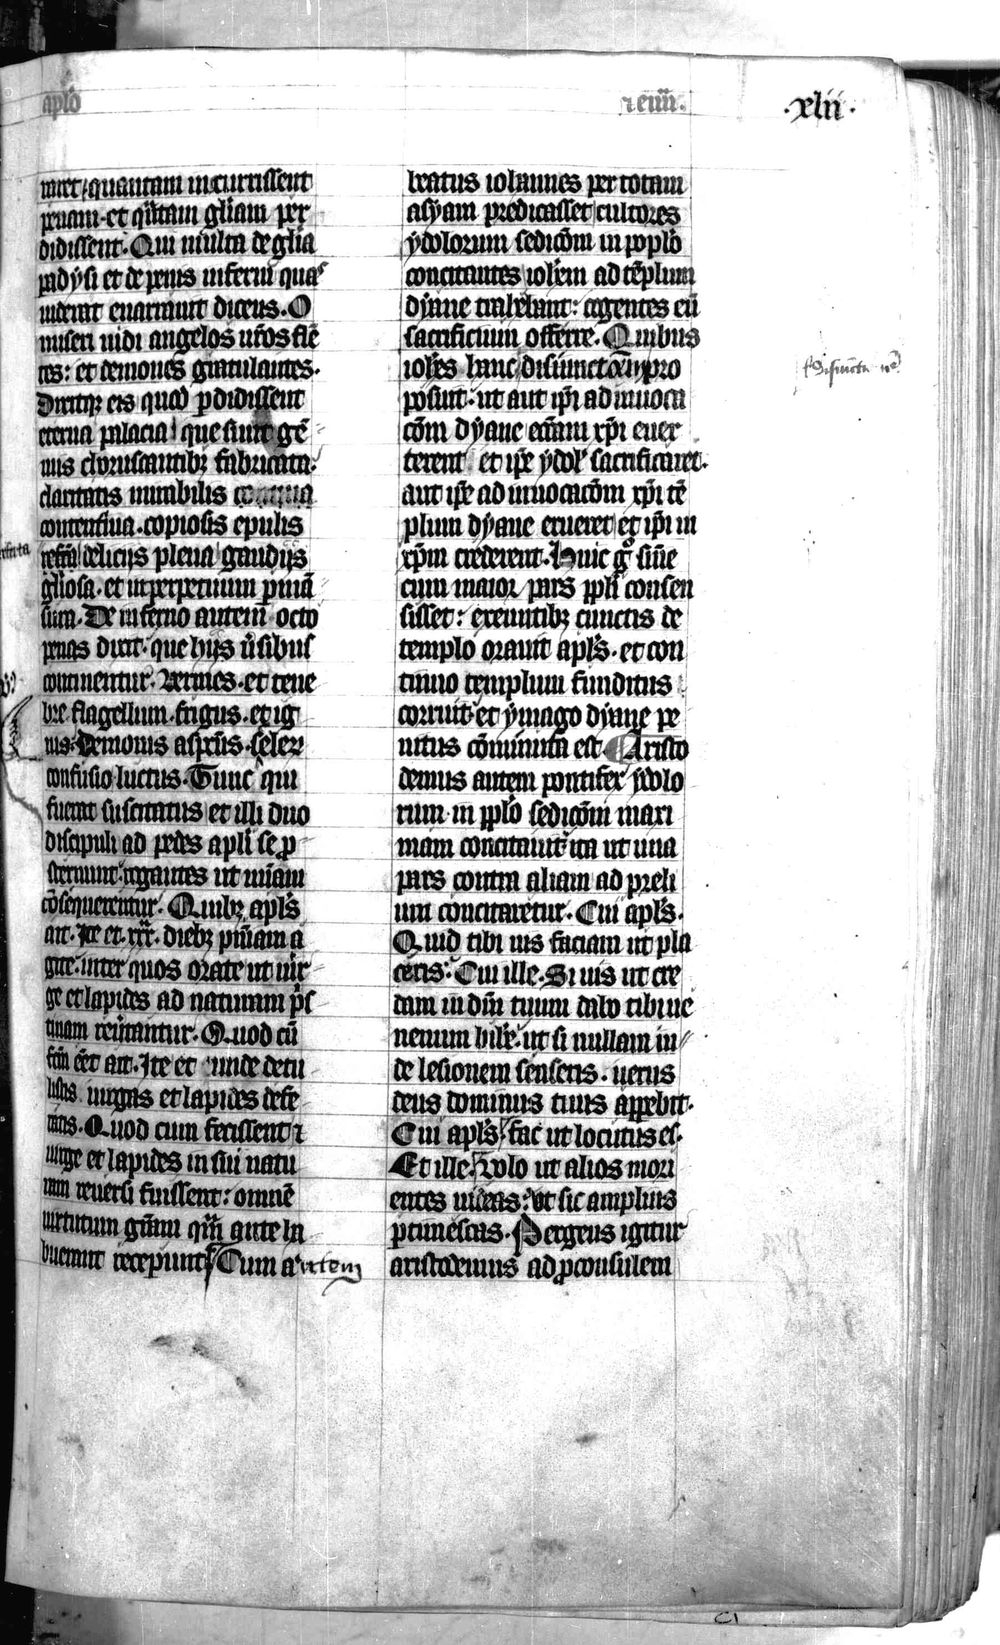 aplo
.xlii.
raret quantam incurrissent
penam et q̄ntam gl̄iam per
didissent. Qui multa de gl̄ia
padysi et de penis inferni quas
uiderat enarrauit dicens. O
miseri uidi angelos ur̄os flē
tes: et demones gratulantes.
Dixitq; eis quod ꝑdidissent
eterna palacia que sunt gē
mis choruscantibꝫ fabricata.
claritatis mirabilis
contentiua. copiosis epulis
refta deliciis plena gaudijs
gl̄iosa. et in perpetuum ꝑmā
sura. De inferno autem octo
penas dixit. que hijs ūsibus
continentur. Vermes. et tene
bre flagellum. frigus. et ig
nis. Demonis asptus. scelerū
confusio luctus. Tunc qui
fuerat suscitatus et illi duo
discipuli ad pedes apl̄i se ꝓ
sternunt. rogantes ut mīam
cōsequerentur. Quibꝫ apl̄s
ait. Ite et .xxx. diebꝫ pn̄iam a
gite. inter quos orate ut uir
ge et lapides ad naturam p̄s
tinam reūtantur. Quod cū
fcm̄ eēt ait. Ite et unde detu
listis uirgas et lapides defe
ratis. Quod cum fecissent ⁊
uirge et lapides in sui natu
ram reuersi fuissent: omnē
uirtutum grām qm̄ ante ha
buerant receperunt Cum autem
beatus iohannes per totam
asyam predicasset cultores
ydolorum sedicōm in poplo
concitantes ioh̄em ad tēplum
dyane trahebant: cogentes eū
sacrificium offerre. Quibus
ioh̄es hanc disiunctōem pro
posuit. ut aut ip̄i ad inuoca
cōm dyane ecc̄am xp̄i euer
terent et ip̄e ydol' sacrificaret.
aut ip̄e ad inuocacōm xp̄i tē
plum dyane erueret et ip̄i in
xp̄m crederent. Huic gͦ sn̄ie
cum maior pars ppl̄i consen
sisset: exeuntibꝫ cunctis de
templo orauit apl̄s. et con
tinuo templum funditus
corruit et ymago dyane pe
nitus cōminuta est. Aristo
demus autem pontifex ydolo
rum in ppl̄o sedicōm maxi
mam concitauit ita ut una
pars contra aliam ad preli
um concitaretur. Cui apl̄s.
Quid tibi uis faciam ut pla
ceris: Cui ille. Si uis ut cre
dam in dm̄ tuum dabo tibi ue
nenum bibe. ut si nullam in
de lesionem senseris. uerus
deus dominus tuus apparebit.
Cui apl̄s. fac ut locutus es.
Et ille. Volo ut alios mori
entes uideas. ut sic amplius
ꝑtimescas. Pergens igitur
aristodemus ad ꝓconsulem